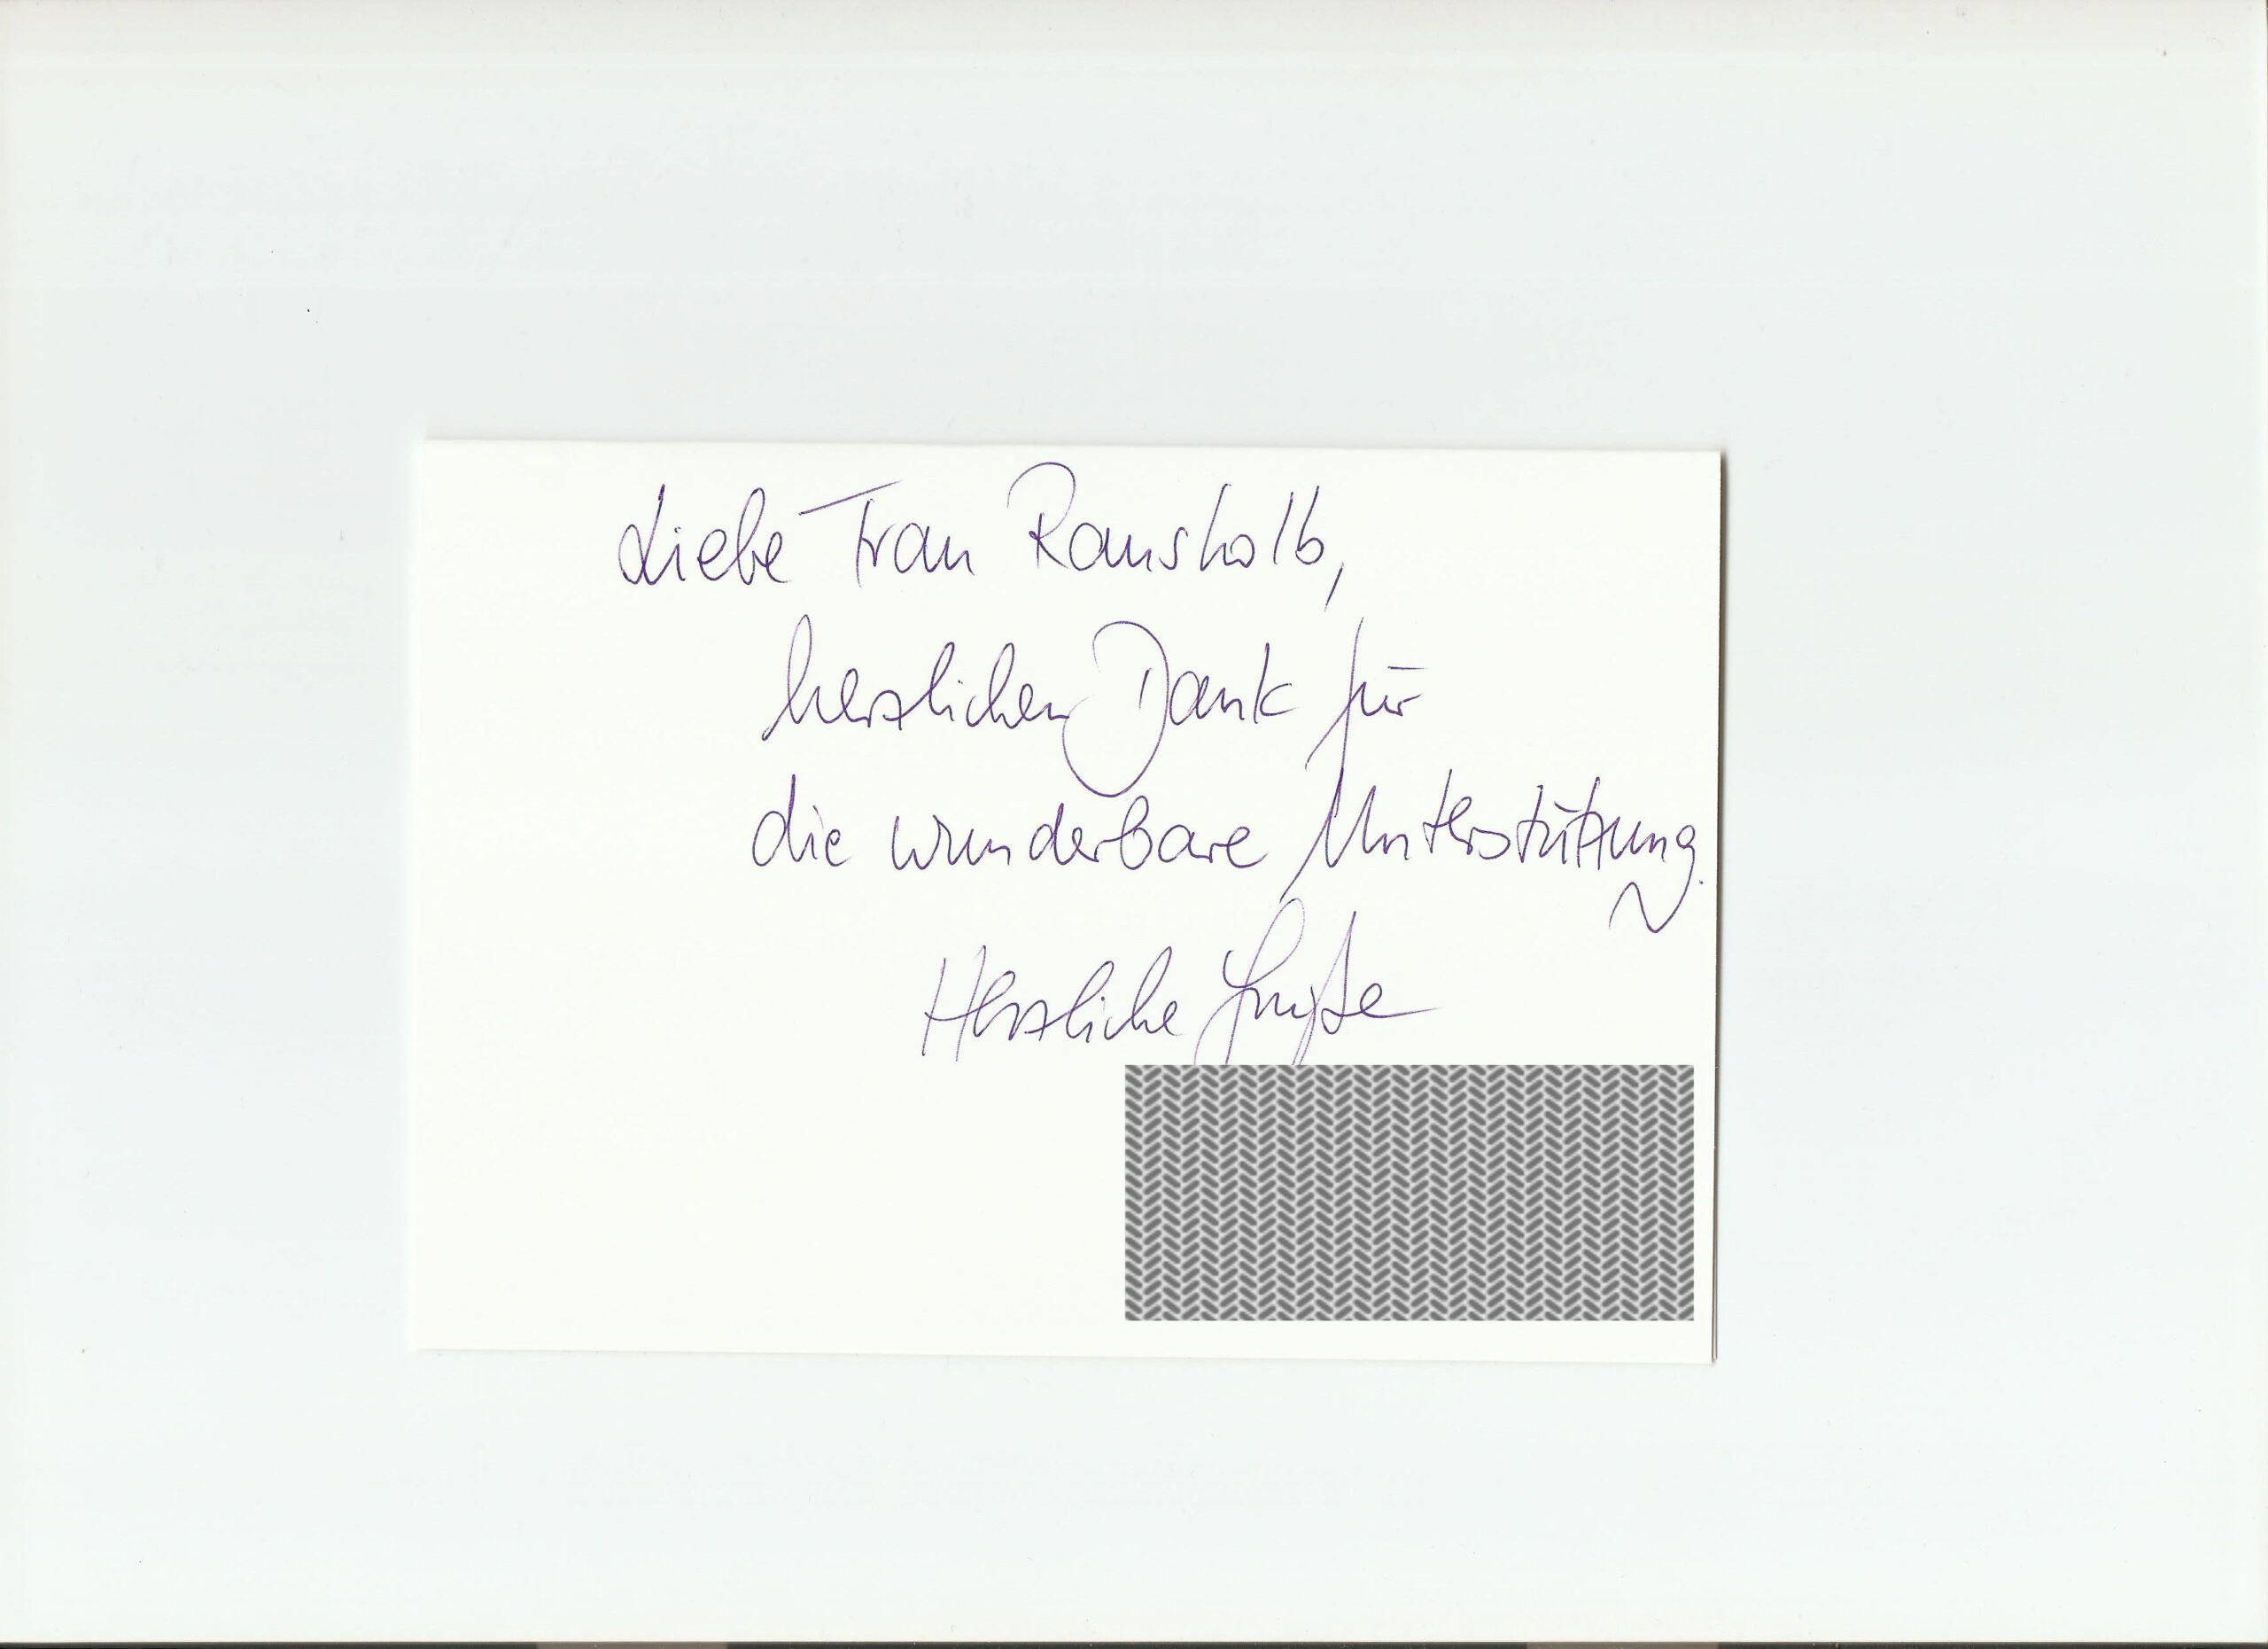 Liebe Frau Ramsholb,
herzlichen Dank für
die wunderbare Unterstützung.
Herzliche Grüße